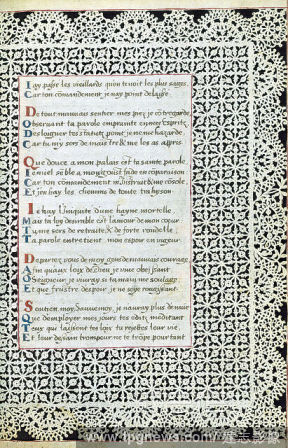 I ay passé les vieillards qu'on tenoit les plus sages
Car ton commandement je n'ay point delaissé
De tout mauvais sentier mes piez je
Observant ta parole emprainte en mon esprit
Desloigner tes statutz point je ne me hazarde
Car tu my sers de maistre & me les as appris
Que douce a mon palais est ta sainte parole
Le miel semble a mon goust fade en comparaison
Car ton commandement m'instruit & me console
Et j'en hay les chemins de toute trahyson
Ie hay l'iniquité d'une hayne mortelle
Mais ta loy desirable est l'amour de mon coeur
Tu me sers de retraite & de forte rondelle
Ta parole entretient mon espoir en vigueur
Departez vous de moy gens de mauvais courages
Afin qu'aux loix de Dieu je vive obeissant
Seigneur je vivray si ta main me soulage
Et que frustré despoir je ne soye rougissant
Soutien moy, Sauve moy, je n'auray plus d'envie
Que d'employer mes jours tes editz meditant
Ceus qui laissent tes loix tu rejettes leur vie
Et leur dessein trompeur ne te trope pourtant
www.ipgnews.com